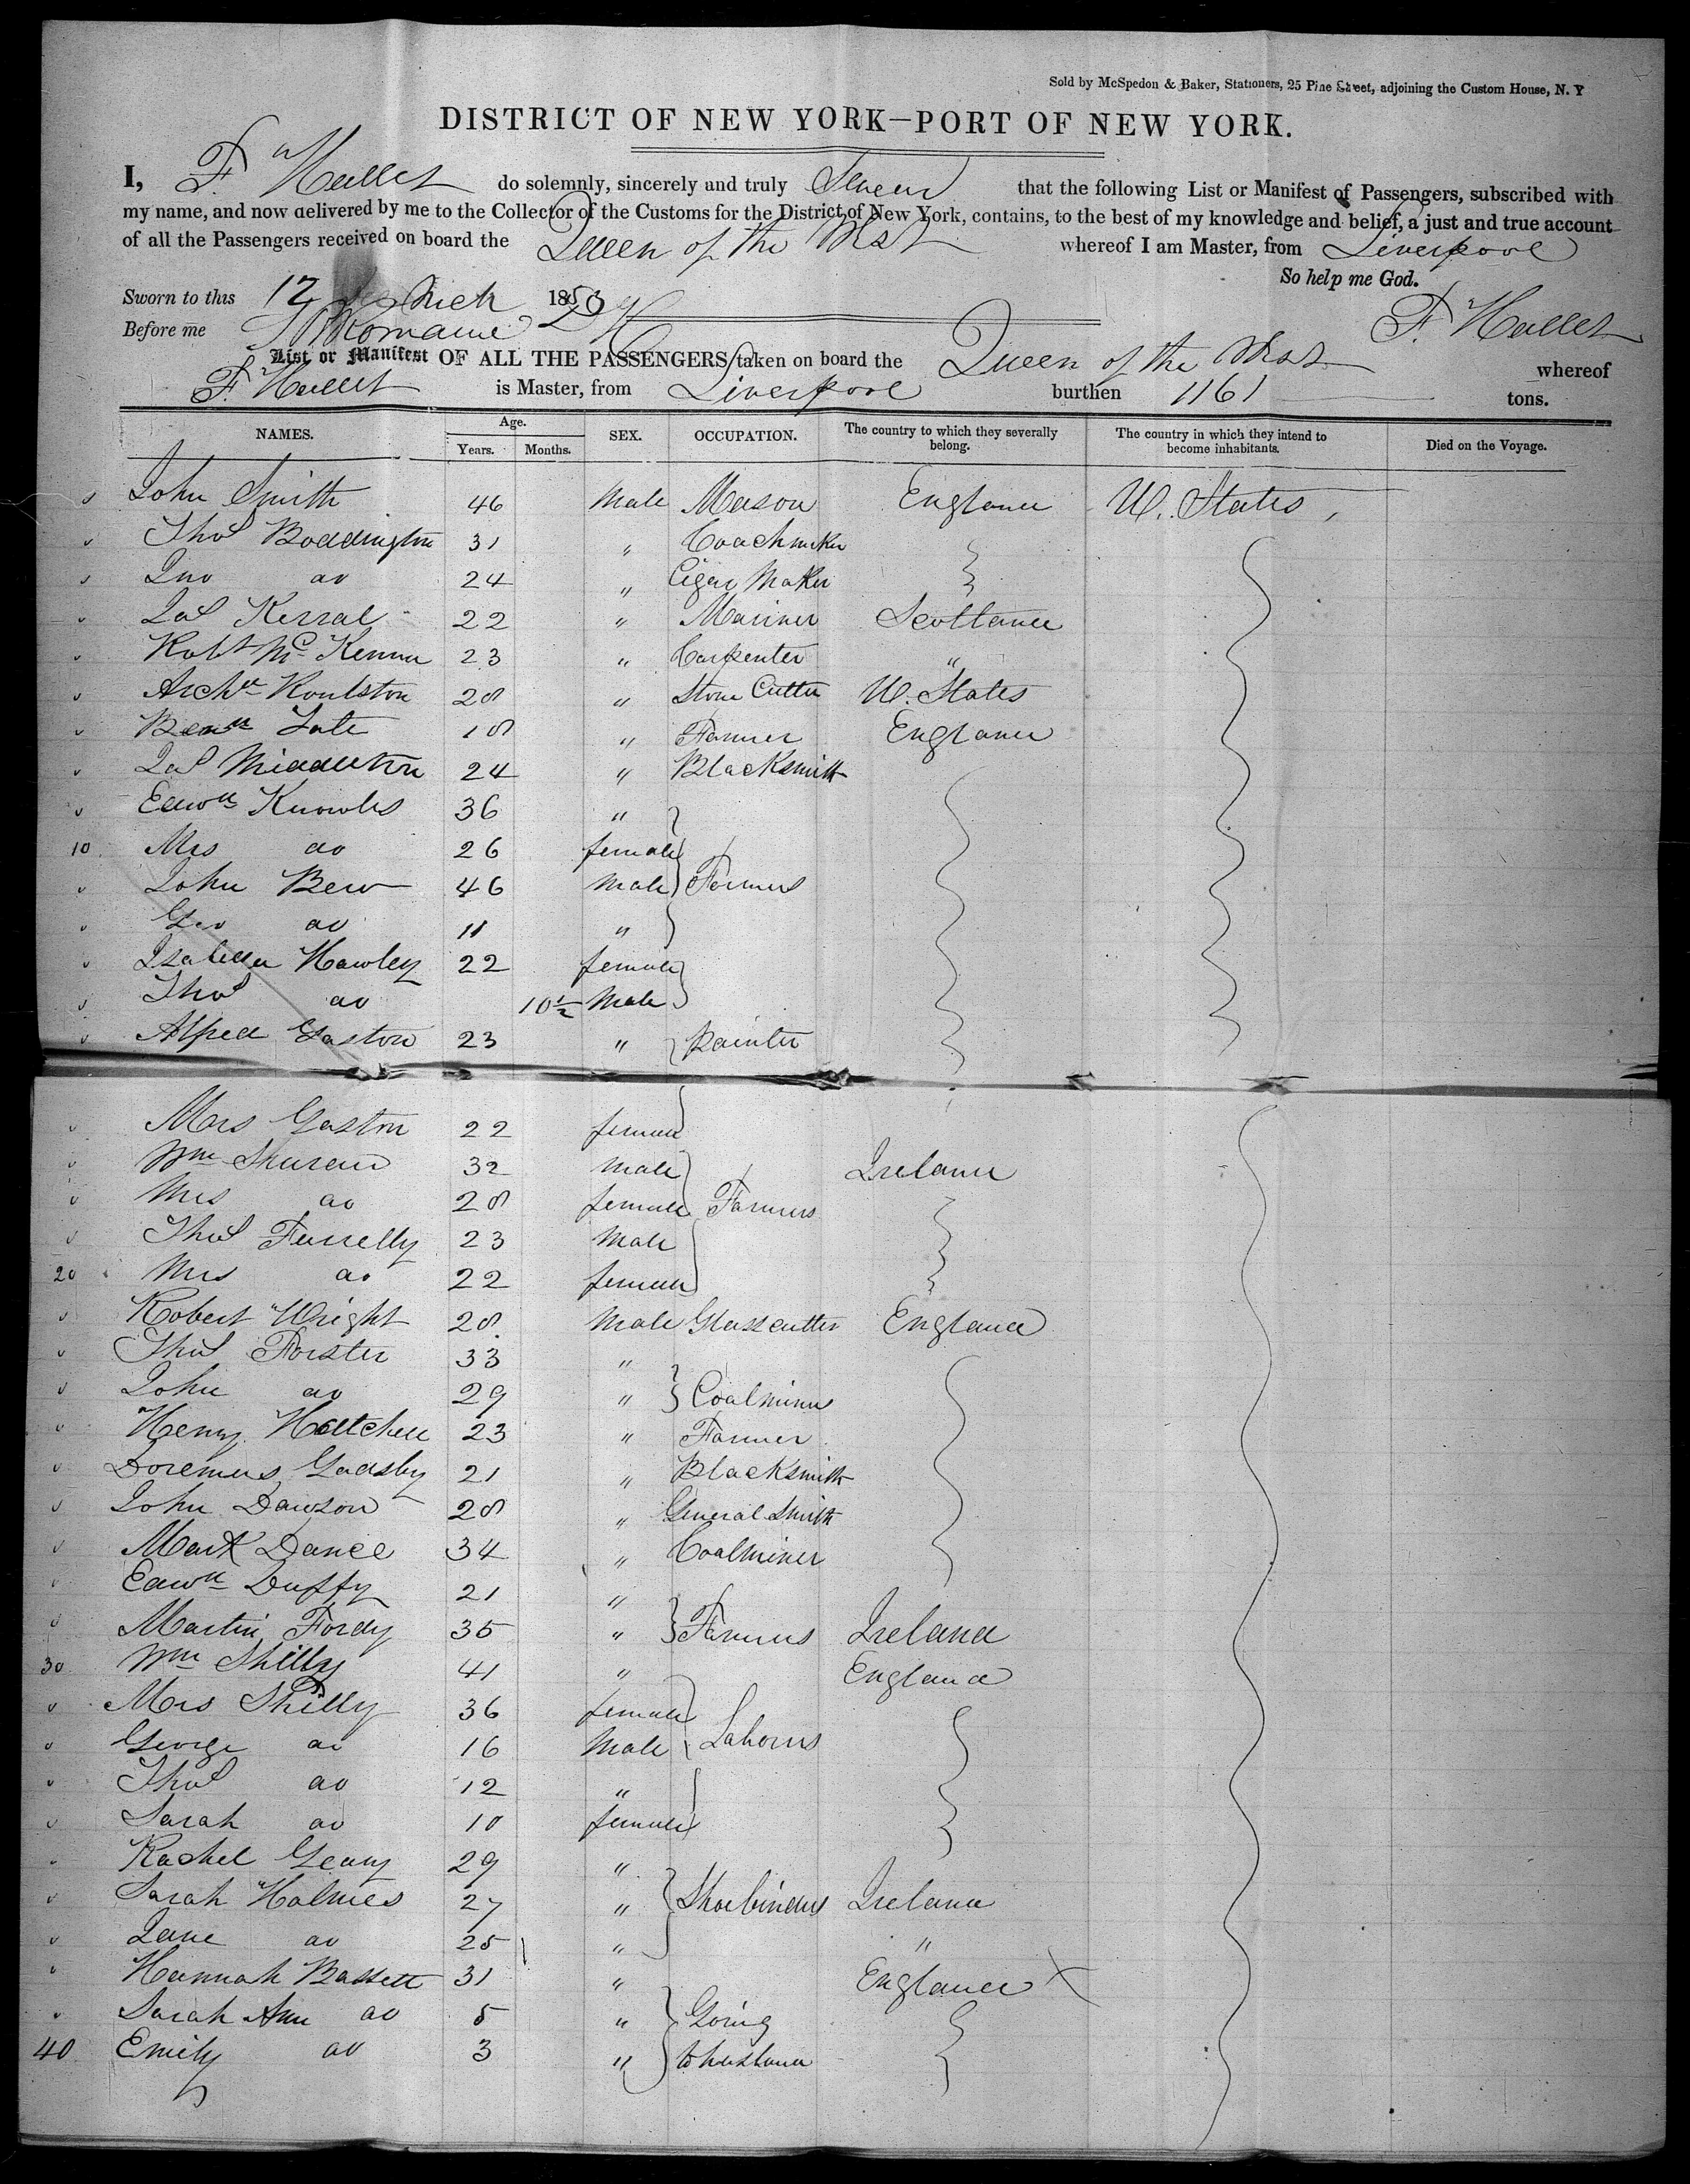 Sold by McSpedon & Baker, Stationers, 25 Pine Street, adjoining the Custom House, N. Y
DISTRICT OF NEW YORK—PORT OF NEW YORK.
I, F. Hallet do solemnly, sincerely and truly Swear that the following List or Manifest of Passengers, subscribed with
my name, and now delivered by me to the Collector of the Customs for the District of New York, contains, to the best of my knowledge and belief, a just and true account
of all the Passengers received on board the Queen of the West whereof I am Master, from Liverpool
So help me God.
Sworn to this 12 Mch 185
Before me Romaine F. Hallet
List or Manifest OF ALL THE PASSENGERS taken on board the Queen of the West whereof
F. Hallet is Master, from Liverpool burthen 1161 tons.
NAMES. Age. Years. Months. SEX. OCCUPATION. The country to which they severally belong. The country in which they intend to become inhabitants. Died on the Voyage.
John Smith 46 Male Mason England U. States
Thos Boddington 31 " Coachmaker
Jno do 24 " Cigar Maker
Jas Kerral 22 " Mariner Scotland
Robt McKenna 23 " Carpenter "
Archd Roulston 28 " Stone Cutter U. States
Benn Tate 18 " Farmer England
Jas Middleton 24 " Blacksmith
Edwd Knowles 36 "
10 Mrs do 26 female
John Bew 46 Male Farmers
Geo do 11 "
Isabella Hawley 22 female
Thos do 10½ Male
Alfred Gaston 23 " Painter
Mrs Gaston 22 female
Wm 32 Male Ireland
Mrs do 28 female Farmers
Thos Farrelly 23 Male
20 Mrs do 22 female
Robert Wright 28 Male Glasscutter England
Thos Forster 33 "
John do 29 " Coalminers
Henry Hatchell 23 " Farmer
Doremus Gadsby 21 " Blacksmith
John Dawson 28 " General Smith
Mark Dance 34 " Coalminer
Edwd Duffy 21 "
Martin Fordy 35 " Farmers Ireland
30 Wm Shilly 41 " England
Mrs Shilly 36 female
George do 16 Male Laborers
Thos do 12 "
Sarah do 10 female
Rachel Geary 29 "
Sarah Holmes 27 " Shoebinders Ireland
Jane do 25 " "
Hannah Bassett 31 " England
Sarah Ann do 5 " Going
40 Emily do 3 " to husband